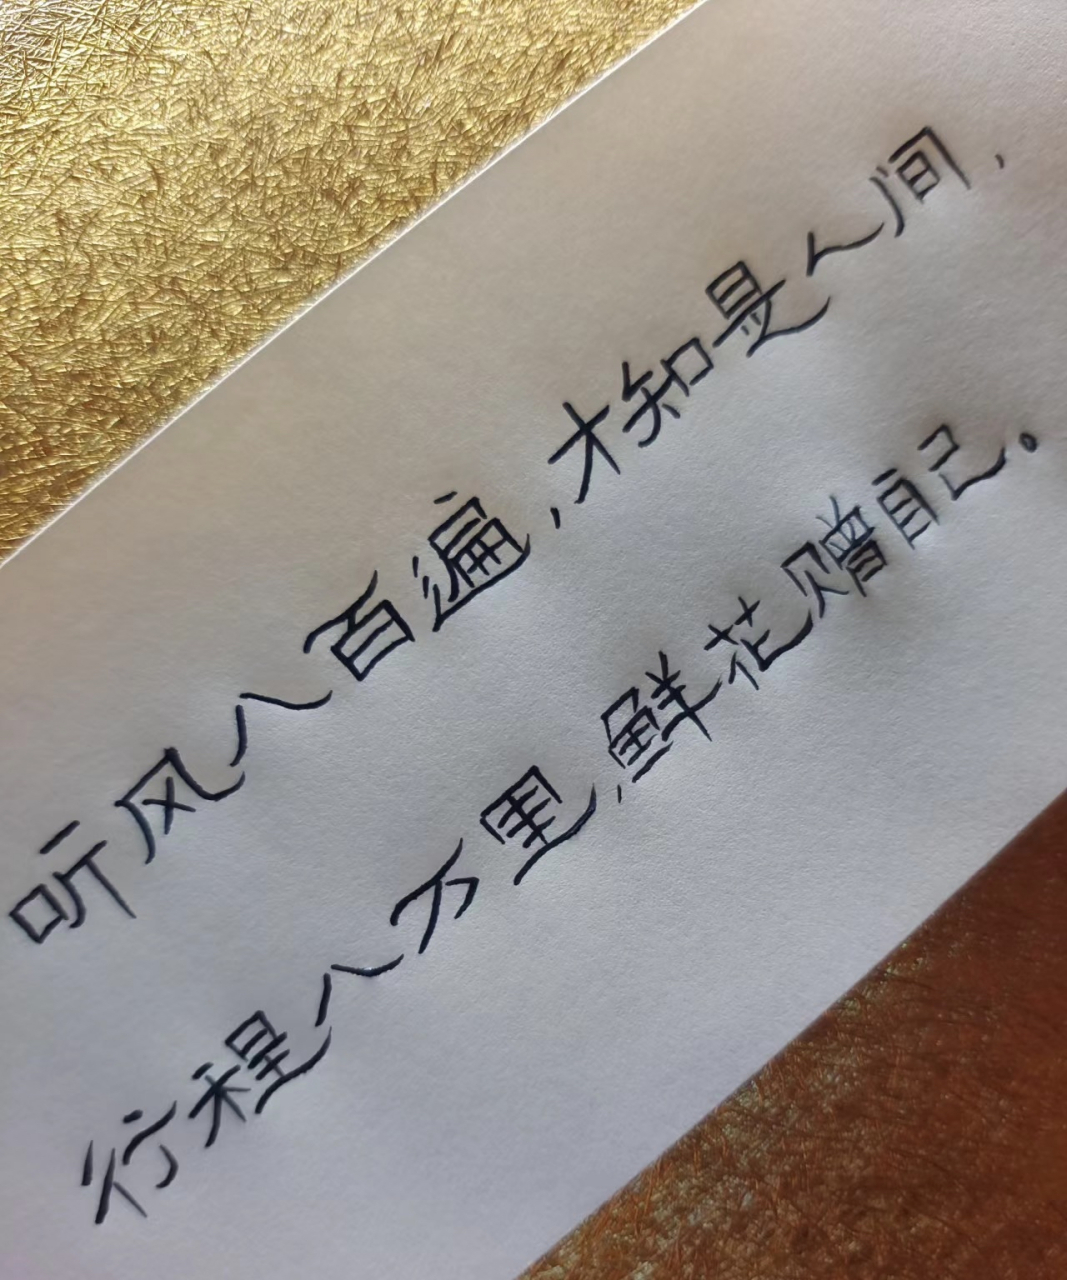 听风八百遍,才知是人间,
行程八万里,鲜花赠自己。